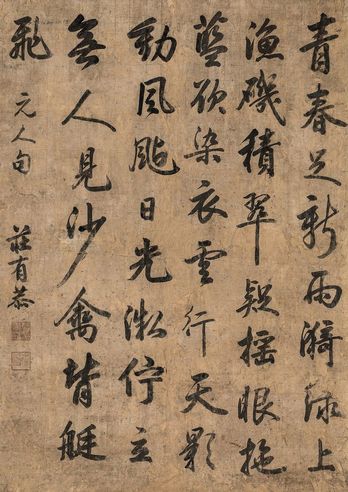 青春足新雨漪渌上
漁磯積翠疑搖眼拖
藍欲染衣雲行天影
動風颭日光微佇立
無人見沙禽背艇
飛
元人句
莊有恭